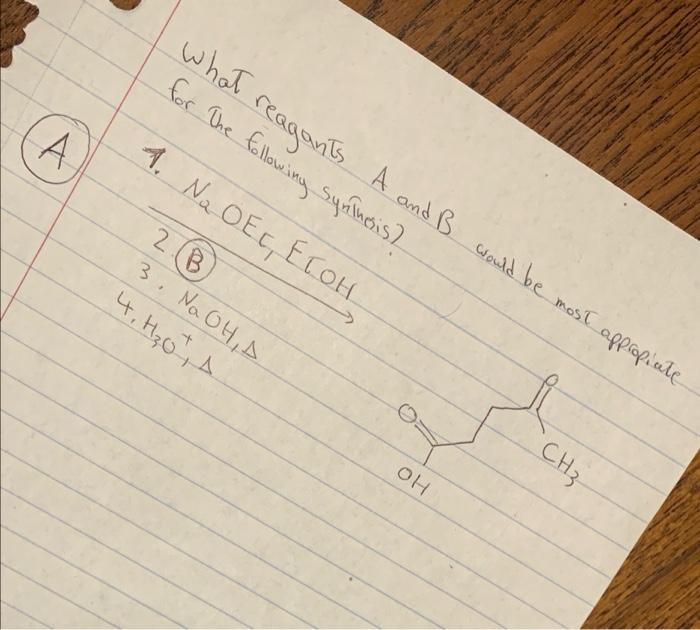 What reagants A and B would be most appropiate
for The following synthesis?
A
1. NaOEt, EtOH
2. B
3. NaOH, Δ
4. H3O+, Δ
O
O
OH
CH3